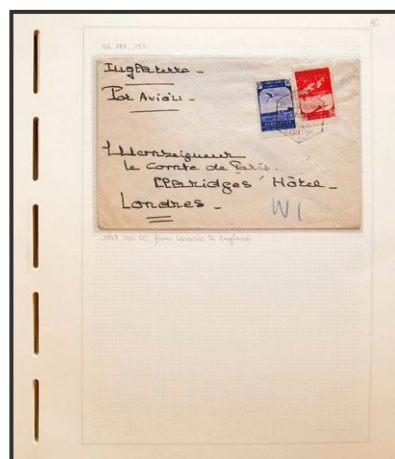 Ed. 188, 193
Inglaterra -
Par Avion
Monseigneur
le Comte de Paris
Claridges' Hôtel -
Londres -
W1
from Larache to England.